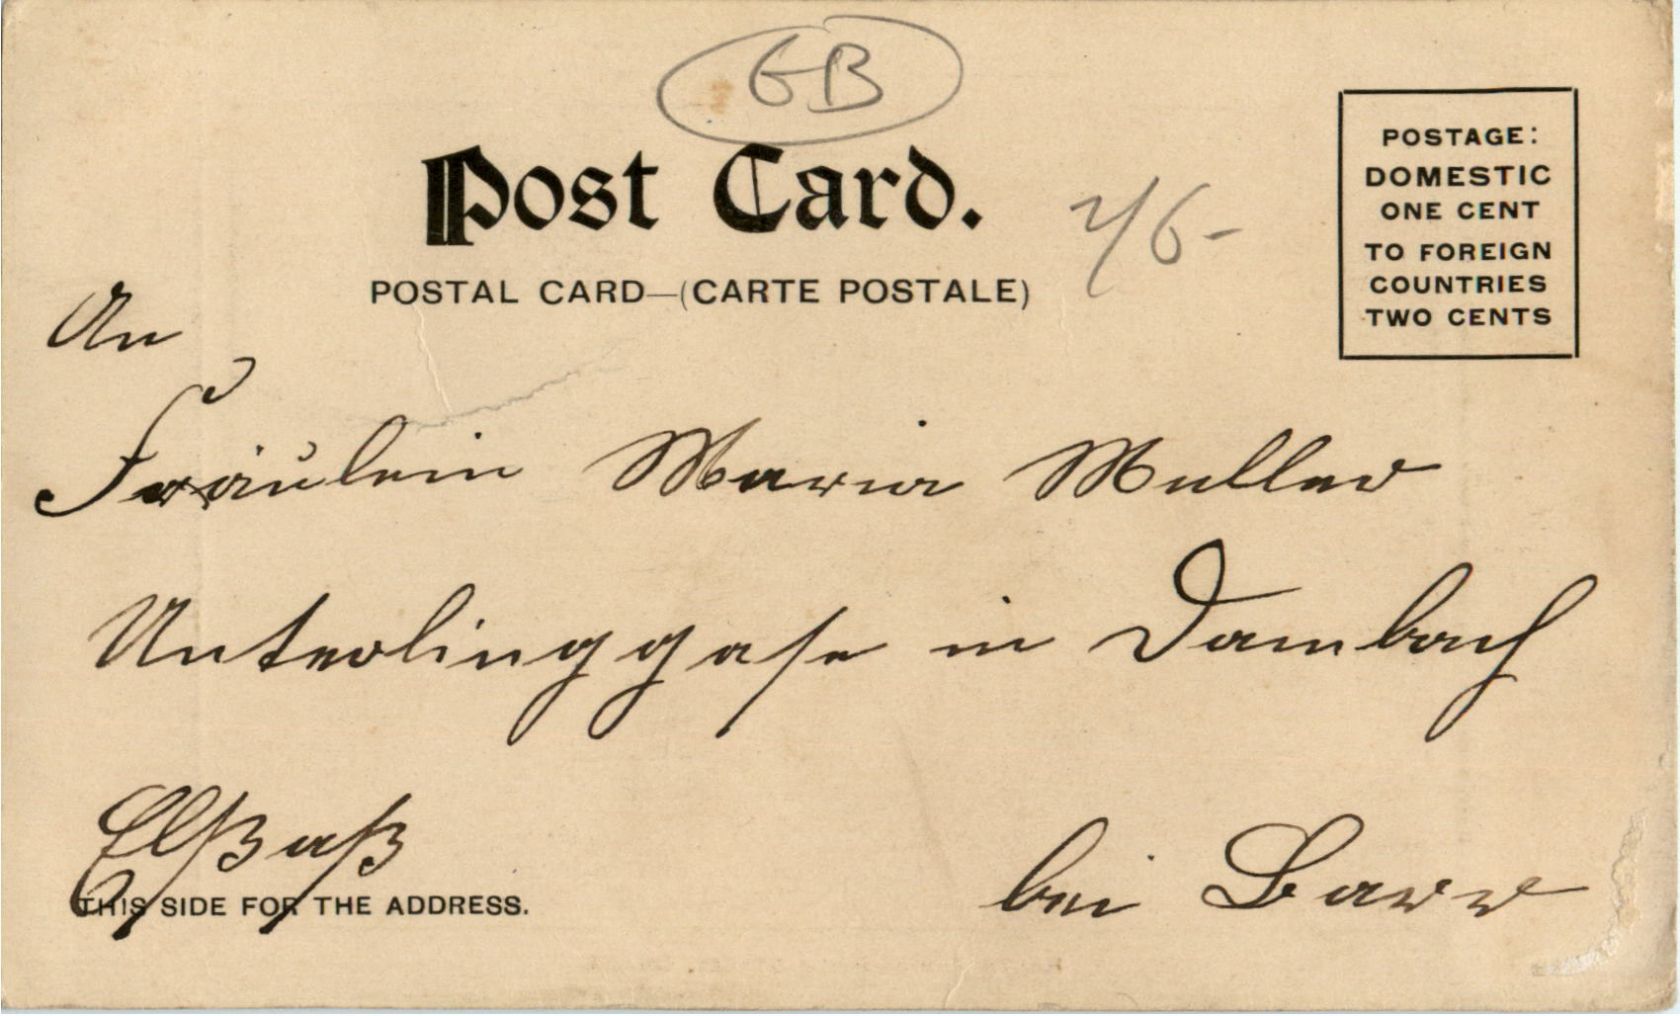 GB
Post Card.
POSTAL CARD—(CARTE POSTALE)
POSTAGE:
DOMESTIC
ONE CENT
TO FOREIGN
COUNTRIES
TWO CENTS
An
Fräulein Maria Muller
Unterlinggaße in Dambach
Elßaß
bei Barr
THIS SIDE FOR THE ADDRESS.